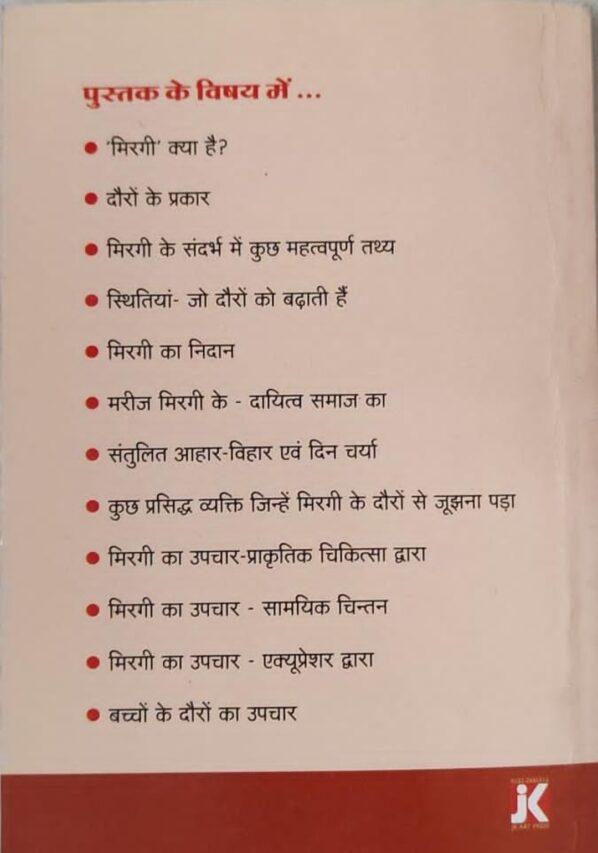 पुस्तक के विषय में ...
● 'मिरगी' क्या है?
● दौरों के प्रकार
● मिरगी के संदर्भ में कुछ महत्वपूर्ण तथ्य
● स्थितियां- जो दौरों को बढ़ाती हैं
● मिरगी का निदान
● मरीज मिरगी के - दायित्व समाज का
● संतुलित आहार-विहार एवं दिन चर्या
● कुछ प्रसिद्ध व्यक्ति जिन्हें मिरगी के दौरों से जूझना पड़ा
● मिरगी का उपचार-प्राकृतिक चिकित्सा द्वारा
● मिरगी का उपचार - सामयिक चिन्तन
● मिरगी का उपचार - एक्यूप्रेशर द्वारा
● बच्चों के दौरों का उपचार
jK
JK ART PRESS